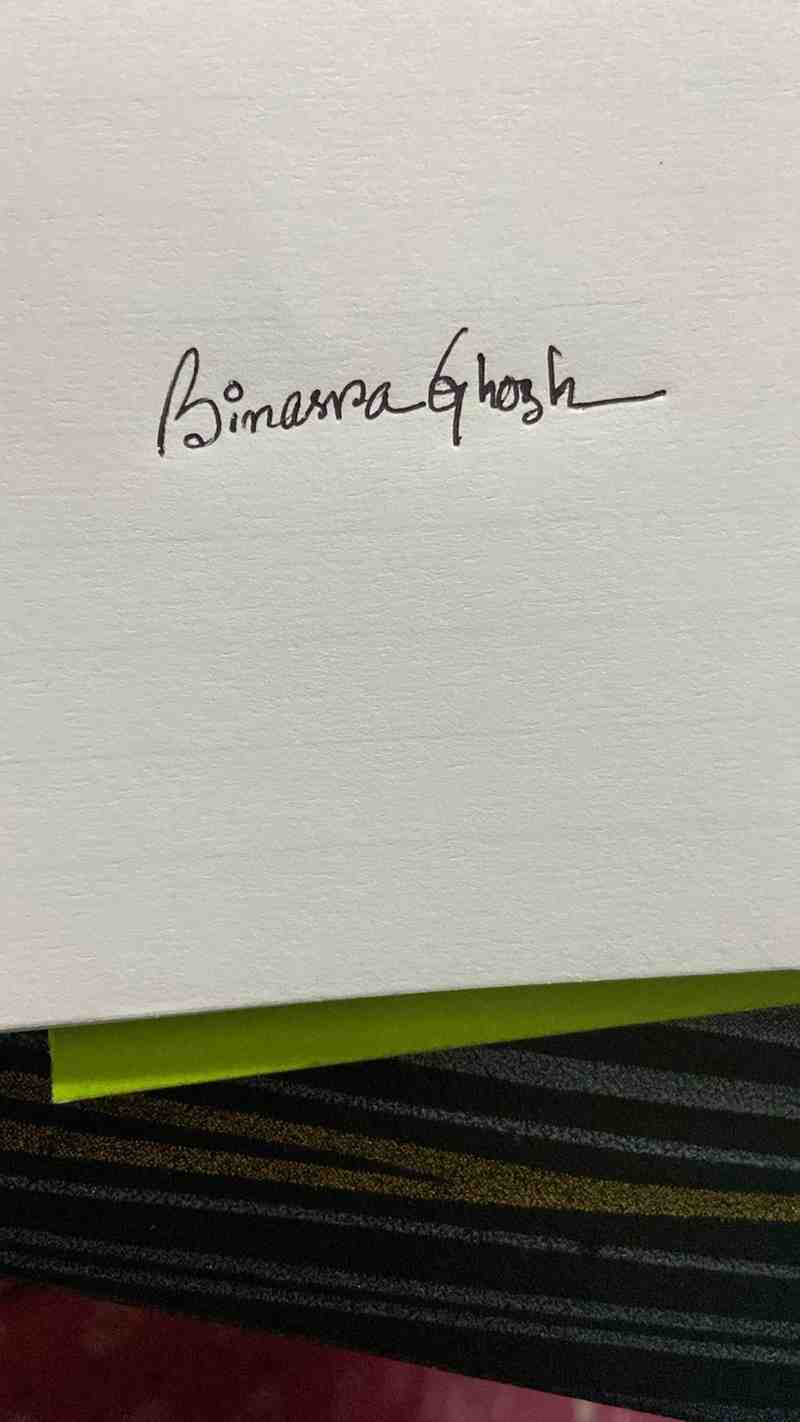 Binasra Ghosh